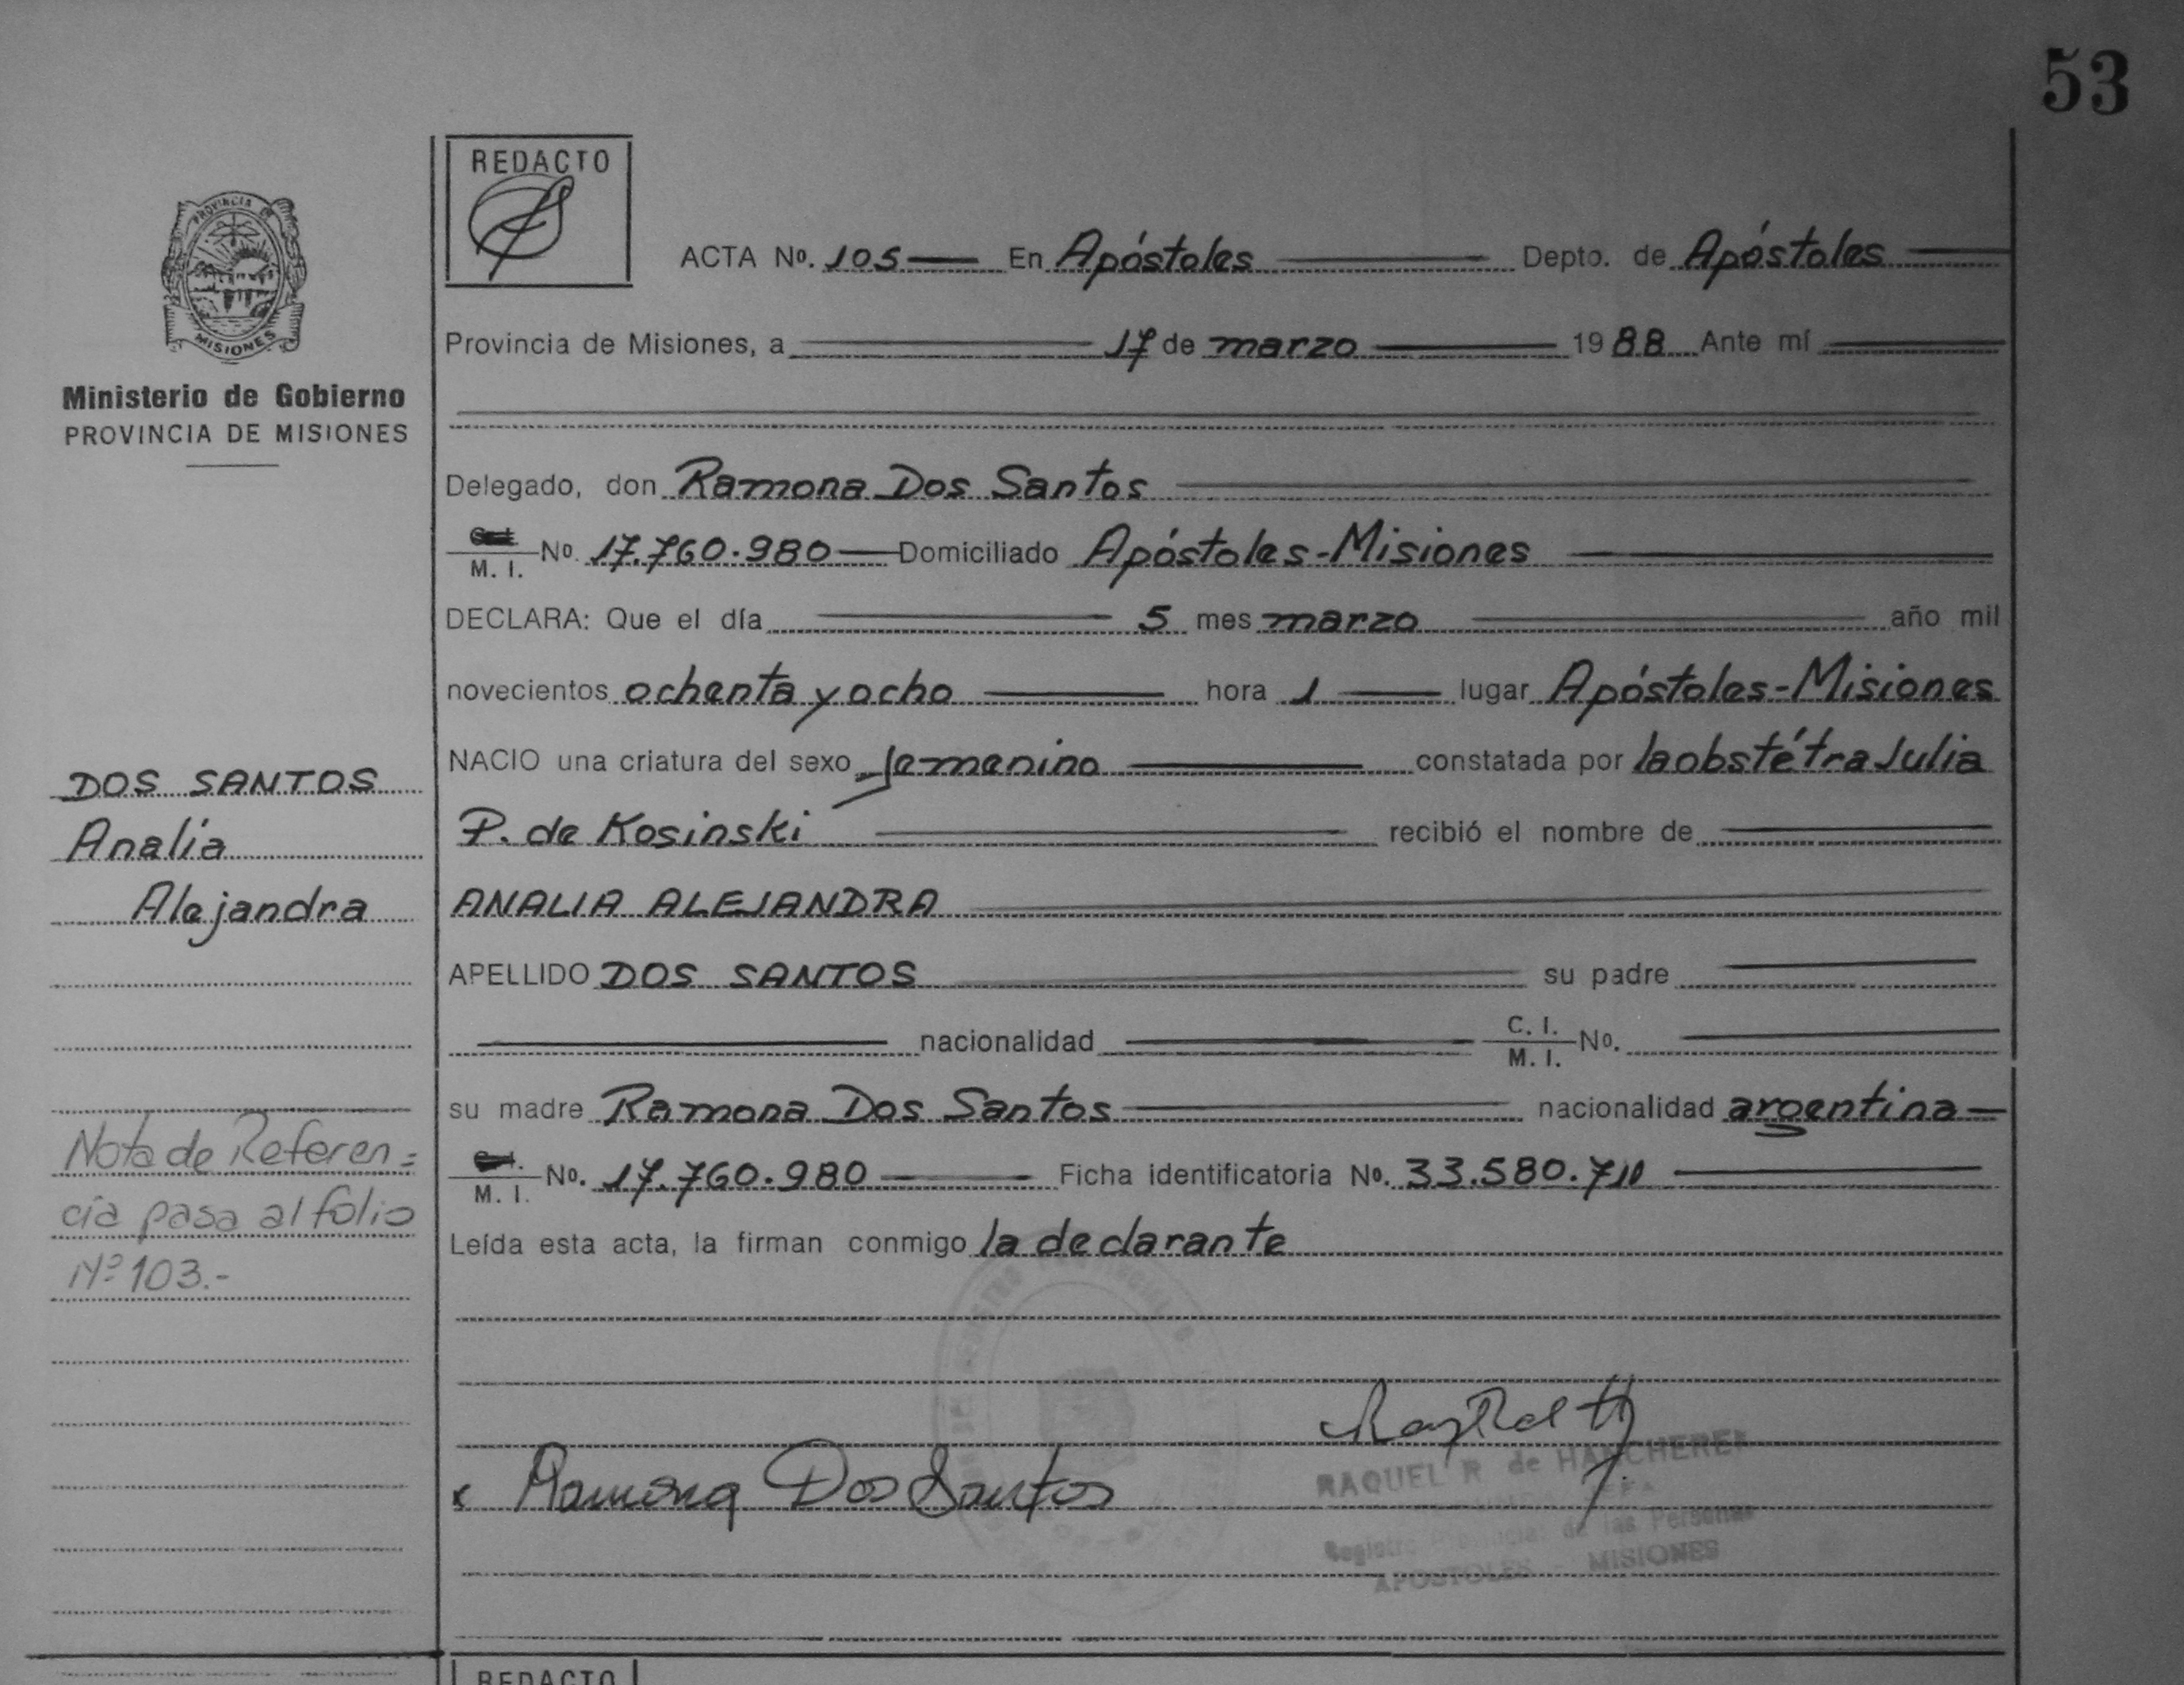 53
REDACTO
ACTA Nº. 105 En Apóstoles Depto. de Apóstoles
PROVINCIA DE
MISIONES
Provincia de Misiones, a 17 de marzo 1988 Ante mí
Ministerio de Gobierno
PROVINCIA DE MISIONES
Delegado, don Ramona Dos Santos
M. I. Nº. 17.760.980 Domiciliado Apóstoles-Misiones
DECLARA: Que el día 5 mes marzo año mil
novecientos ochenta y ocho hora 1 lugar Apóstoles-Misiones
NACIO una criatura del sexo femenino constatada por la obstétra Julia
P. de Kosinski recibió el nombre de
ANALIA ALEJANDRA
APELLIDO DOS SANTOS su padre
nacionalidad C. I. M. I. Nº.
su madre Ramona Dos Santos nacionalidad argentina
M. I. Nº. 17.760.980 Ficha identificatoria Nº. 33.580.710
Leída esta acta, la firman conmigo la declarante
DOS SANTOS
Analía
Alejandra
Nota de Referen=
cia pasa al folio
Nº 103.-
x Ramona Dos Santos
RAQUEL R. de
Registro Provincial de las Personas
APOSTOLES - MISIONES
REDACTO